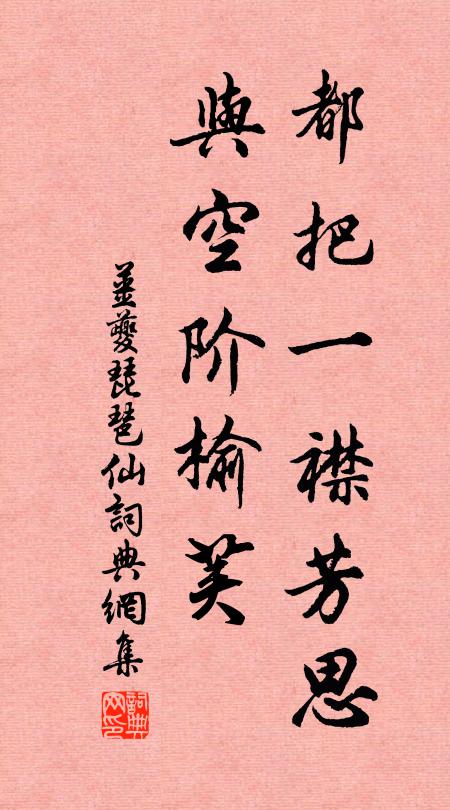 都把一襟芳思
與空阶榆荚
姜夔琵琶仙詞典網集
詞典網印